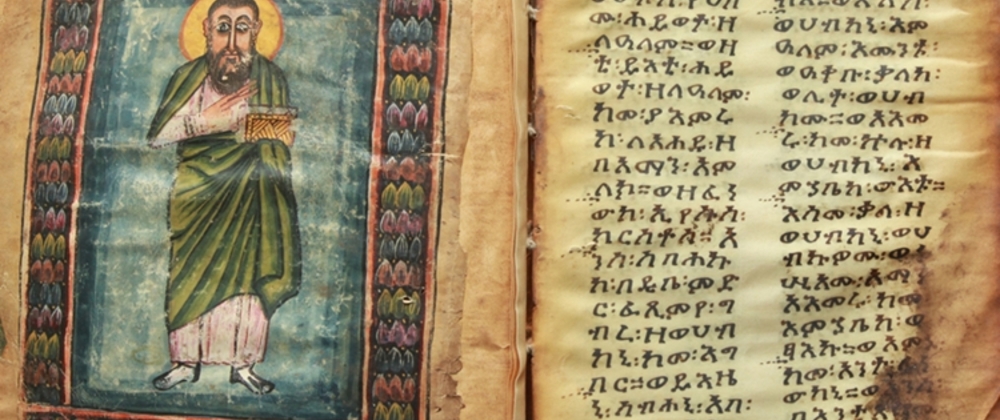 ሙ፡ሕይወት፡ዘ
ለዓለም።ወዛ
ቲ፡ይእቲ፡ሕይ
ወት፡ዘለዓለም፡
ከመ፡ያእምሩ
ከ፡ለአሐዱ፡ዘ
በአማን፡አም
ላክ።ወዘፈነ
ውከ፡ኢየሱስ፡
ክርስቶስ። አ
ንሰ፡ሰባሕኩ
ከ፡በዲበ፡ምድ
ር፡ፈጺምየ፡ግ
ብረ፡ዘወሀብ
ከኒ፡ከመ፡እግ
በር።ወይእዜ
ኒ፡ሰብሐኒ፡አባ፡
ወሀብከኒ፡እም
ዓለም፡እሙንቱ፡
ወዓቀቡ፡ቃለከ፡
ወሊተ፡ወሀብ
ከሙ።ወአእመ
ሩ፡ከመ፡ኵሉ፡ዘ
ወሀብከኒ፡ እ
ምኀቤከ፡ውእቱ።
እስመ፡ቃለ፡ዘ
ወሀብከኒ፡ወሀ
ብክዎሙ፡ወ
አእመሩ፡ከመ
እምኀቤከ፡ወ
ፃእኩ።ወአም
ከመ፡አንተ፡